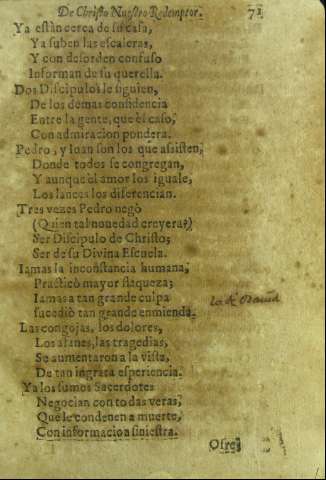 De Christo Nuestro Redemptor. 71
Ya estàn cerca de su casa,
Ya suben las escaleras,
Y con desorden confuso
Informan de su querella.
Dos Discipulos le siguen,
De los demas confidencia
Entre la gente, que èl caso,
Con admiracion pondera.
Pedro, y Ioan son los que assisten,
Donde todos se congregan,
Y aunque el amor los iguale,
Los lances los diferencian.
Tres vezes Pedro negò
(Quien tal nouedad creyera?)
Ser Discipulo de Christo;
Ser de su Divina Escuela.
Iamas la inconstancia humana,
Practicò mayor flaqueza;
Iamas a tan grande culpa
sucediò tan grande enmienda.
Las congojas, los dolores,
Los afanes, las tragedias,
Se aumentaron a la vista,
De tan ingrata esperiencia.
Ya los sumos Sacerdotes
Negocian con todas veras,
Que le condenen a muerte,
Con informacion siniestra.
Ofre-